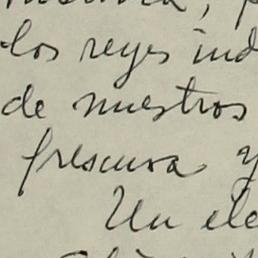 los reyes ind
de nuestros
frescura y
Un ele